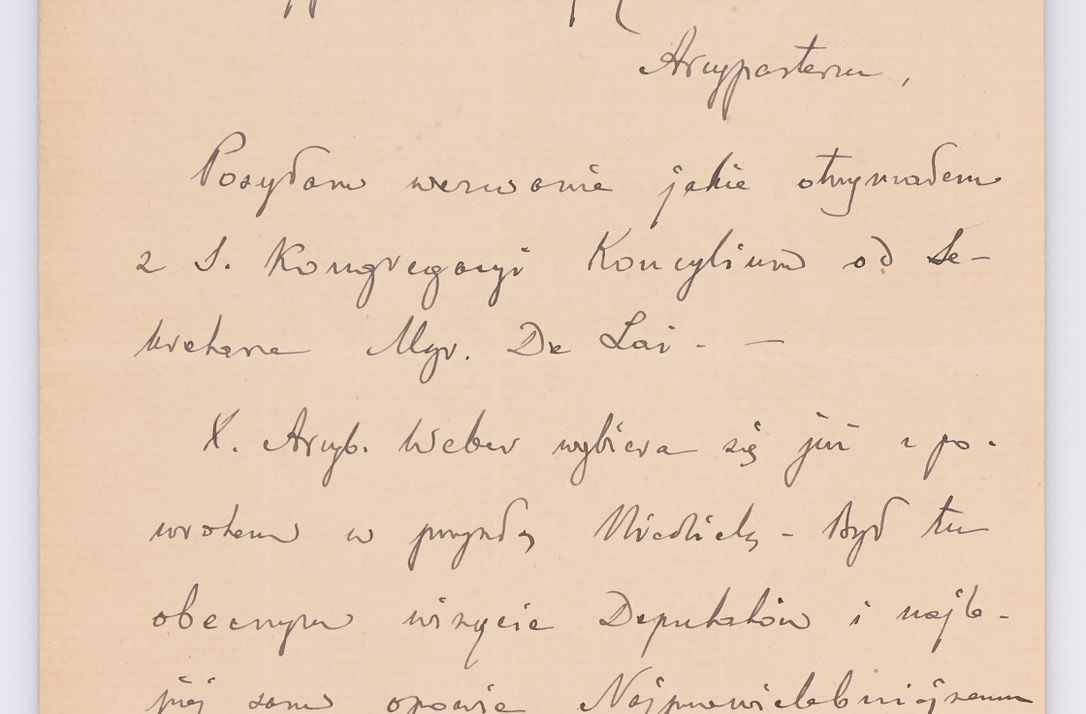 Arcypasterzu,
Posyłam wezwanie jakie otrzymałem
z S. Kongregacyi Koncylium od Se-
kretarza Mgr. De Lai. —
X. Arcyb. Weber wybiera się już z po-
wrotem w przyszłą Niedzielę - Był tu
obecnym wizycie Deputatów i najle-
piej sam opowie Najprzewielebniejszemu